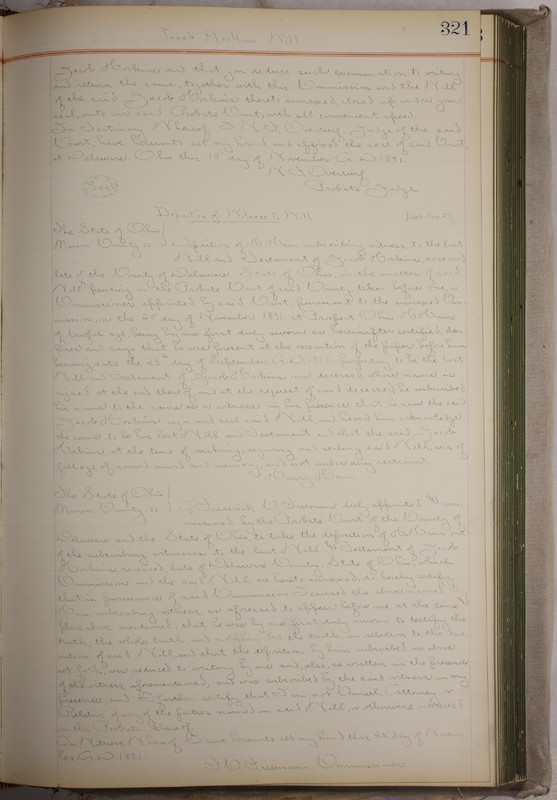 321
Jacob Hoskins Will
Jacob Hoskins and that you reduce such examination to writing
and return the same, together with this Commission and the Will
of the said Jacob Hoskins thereto annexed, closed up under your
seal, unto our said Probate Court, with all convenient speed.
In Testimony Whereof, I, Judge of the said
Court, have hereunto set my hand and affixed the seal of said Court,
at Delaware Ohio this 18 day of November A.D. 1891
Probate Judge
Seal
Deposition of Witness to Will
The State of Ohio
Marion County ss Deposition of subscribing witness to the last
Will and Testament of Jacob Hoskins deceased
late of the County of Delaware State of Ohio, in the matter of said
Will pending in the Probate Court of said County, taken before me, a
Commissioner appointed by said Court, pursuant to the annexed Com-
mission, on the 20 day of November 1891, at Prospect Ohio
of lawful age, being by me first duly sworn as hereinafter certified, de-
poses and says that he was present at the execution of the paper before him
bearing date the 28th day of September A.D. purporting to be the last
Will and Testament of Jacob Hoskins now deceased whose name is
signed at the end thereof, and at the request of said deceased, he subscribed
his name to the same as a witness in his presence, that he saw the said
Jacob Hoskins sign and seal said Will, and heard him acknowledge
the same to be his last Will and Testament and that the said Jacob
Hoskins at the time of making, signing and sealing said Will, was of
full age, of sound mind and memory, and not under any restraint
Henry
The State of Ohio
Marion County ss I, Frederick C. Freeman duly appointed com-
missioned by the Probate Court of the County of
Delaware and the State of Ohio to take the deposition of one
of the subscribing witnesses to the last Will & Testament of Jacob
Hoskins, deceased, late of Delaware County, State of Ohio, which
Commission and the said Will are hereto annexed, do hereby certify,
that in pursuance of said Commission I caused the above named
subscribing witness as aforesaid to appear before me, at the time &
place above mentioned; that he was by me first duly sworn to testify the
truth, the whole truth and nothing but the truth, in relation to the exe-
cution of said Will, and that the deposition by him subscribed as above
set forth, was reduced to writing by me and, also, so written in the presence
of the witness aforementioned, and was subscribed by the said witness in my
presence, and I further certify that I am not Counsel, Attorney, or
Relative of any of the parties named in said Will, or otherwise interested
in the Probate thereof.
In Witness Whereof I have hereunto set my hand this 20 day of Novem-
ber A.D. 1891.
F.C. Freeman Commissioner